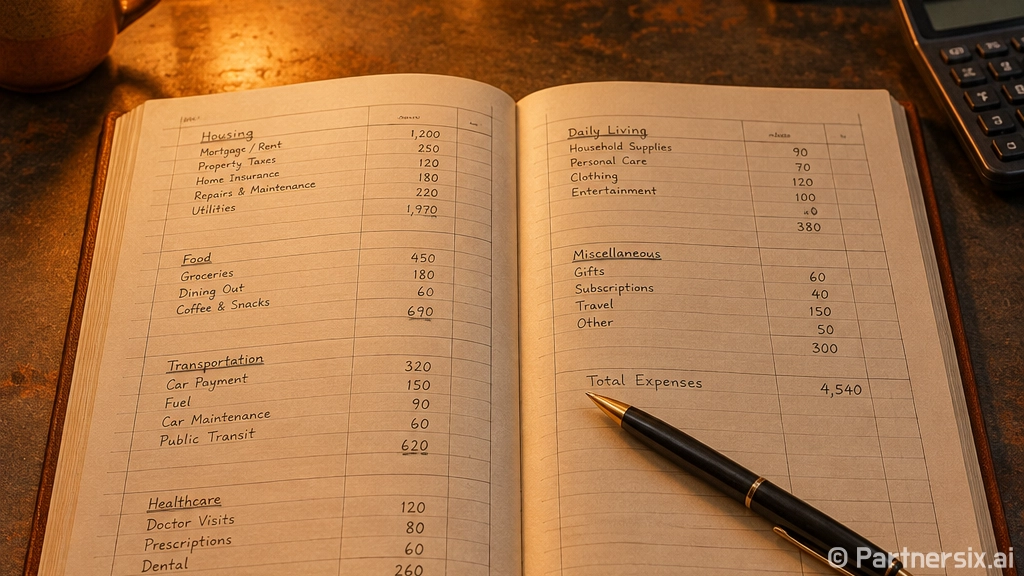 Housing 1,200
Mortgage / Rent 250
Property Taxes 120
Home Insurance 180
Repairs & Maintenance 220
Utilities 1,970
Food 450
Groceries 180
Dining Out 60
Coffee & Snacks 690
Transportation 320
Car Payment 150
Fuel 90
Car Maintenance 60
Public Transit 620
Healthcare 120
Doctor Visits 80
Prescriptions 60
Dental 260
Daily Living
Household Supplies 90
Personal Care 70
Clothing 120
Entertainment 100
380
Miscellaneous
Gifts 60
Subscriptions 40
Travel 150
Other 50
300
Total Expenses 4,540
© Partnersix.ai